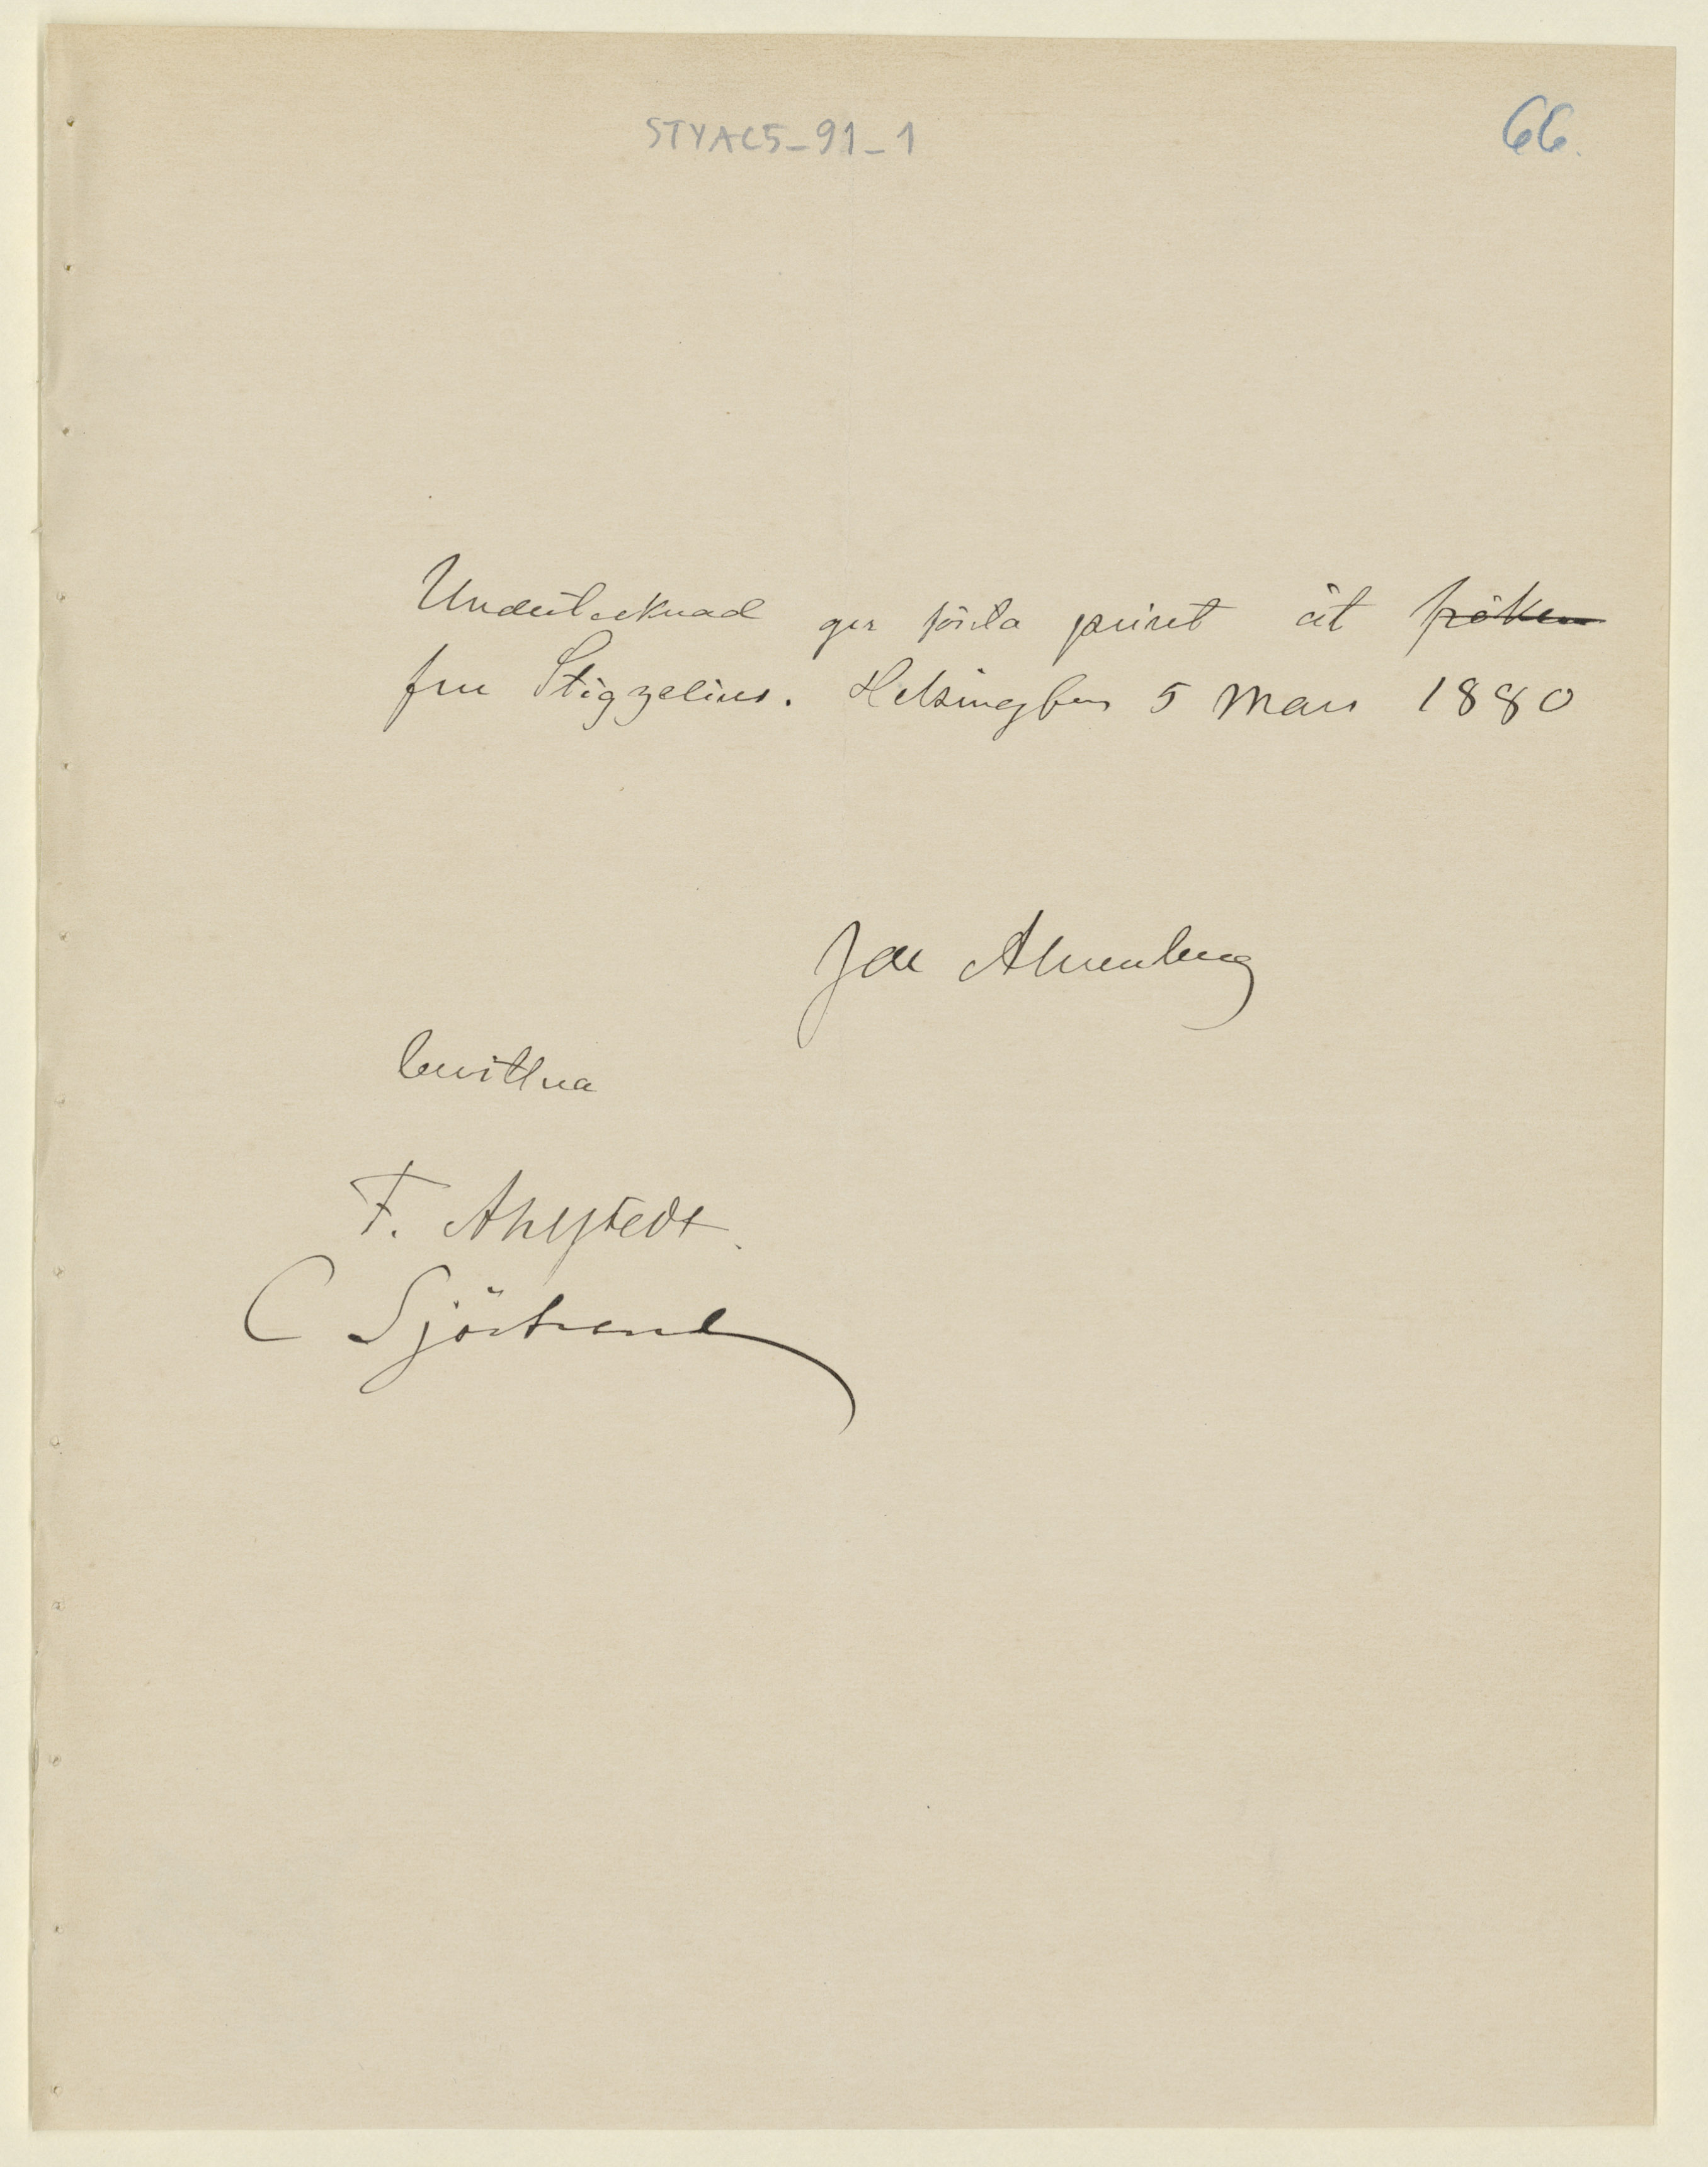 STYAC5-91-1
66.
Undertecknad ger första priset åt fröken
fru Stigzelius. Helsingfors 5 Mars 1880
Jac Ahrenberg
bevittna
F. Ahlstedt.
C Sjöstrand